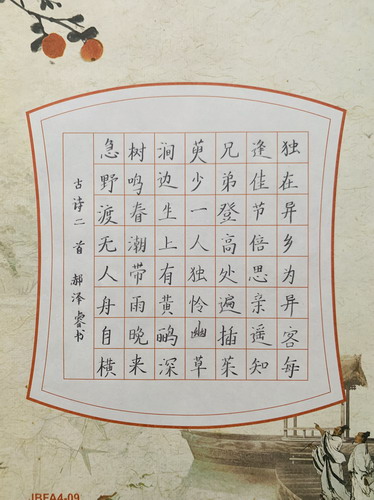 独在异乡为异客每
逢佳节倍思亲遥知
兄弟登高处遍插茱
萸少一人独怜幽草
涧边生上有黄鹂深
树鸣春潮带雨晚来
急野渡无人舟自横
古诗二首 郝泽睿书